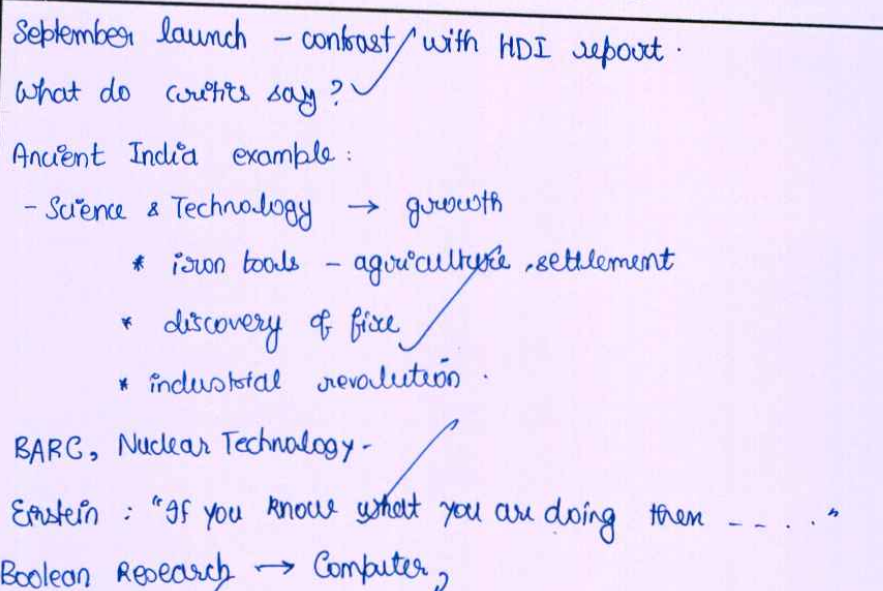 September launch - contrast with HDI report.
What do critics say?
Ancient India example:
- Science & Technology → growth
* iron tools - agriculture, settlement
* discovery of fire
* industrial revolution.
BARC, Nuclear Technology -
Einstein : "If you know what you are doing then -- . . ."
Boolean Research → Computer,